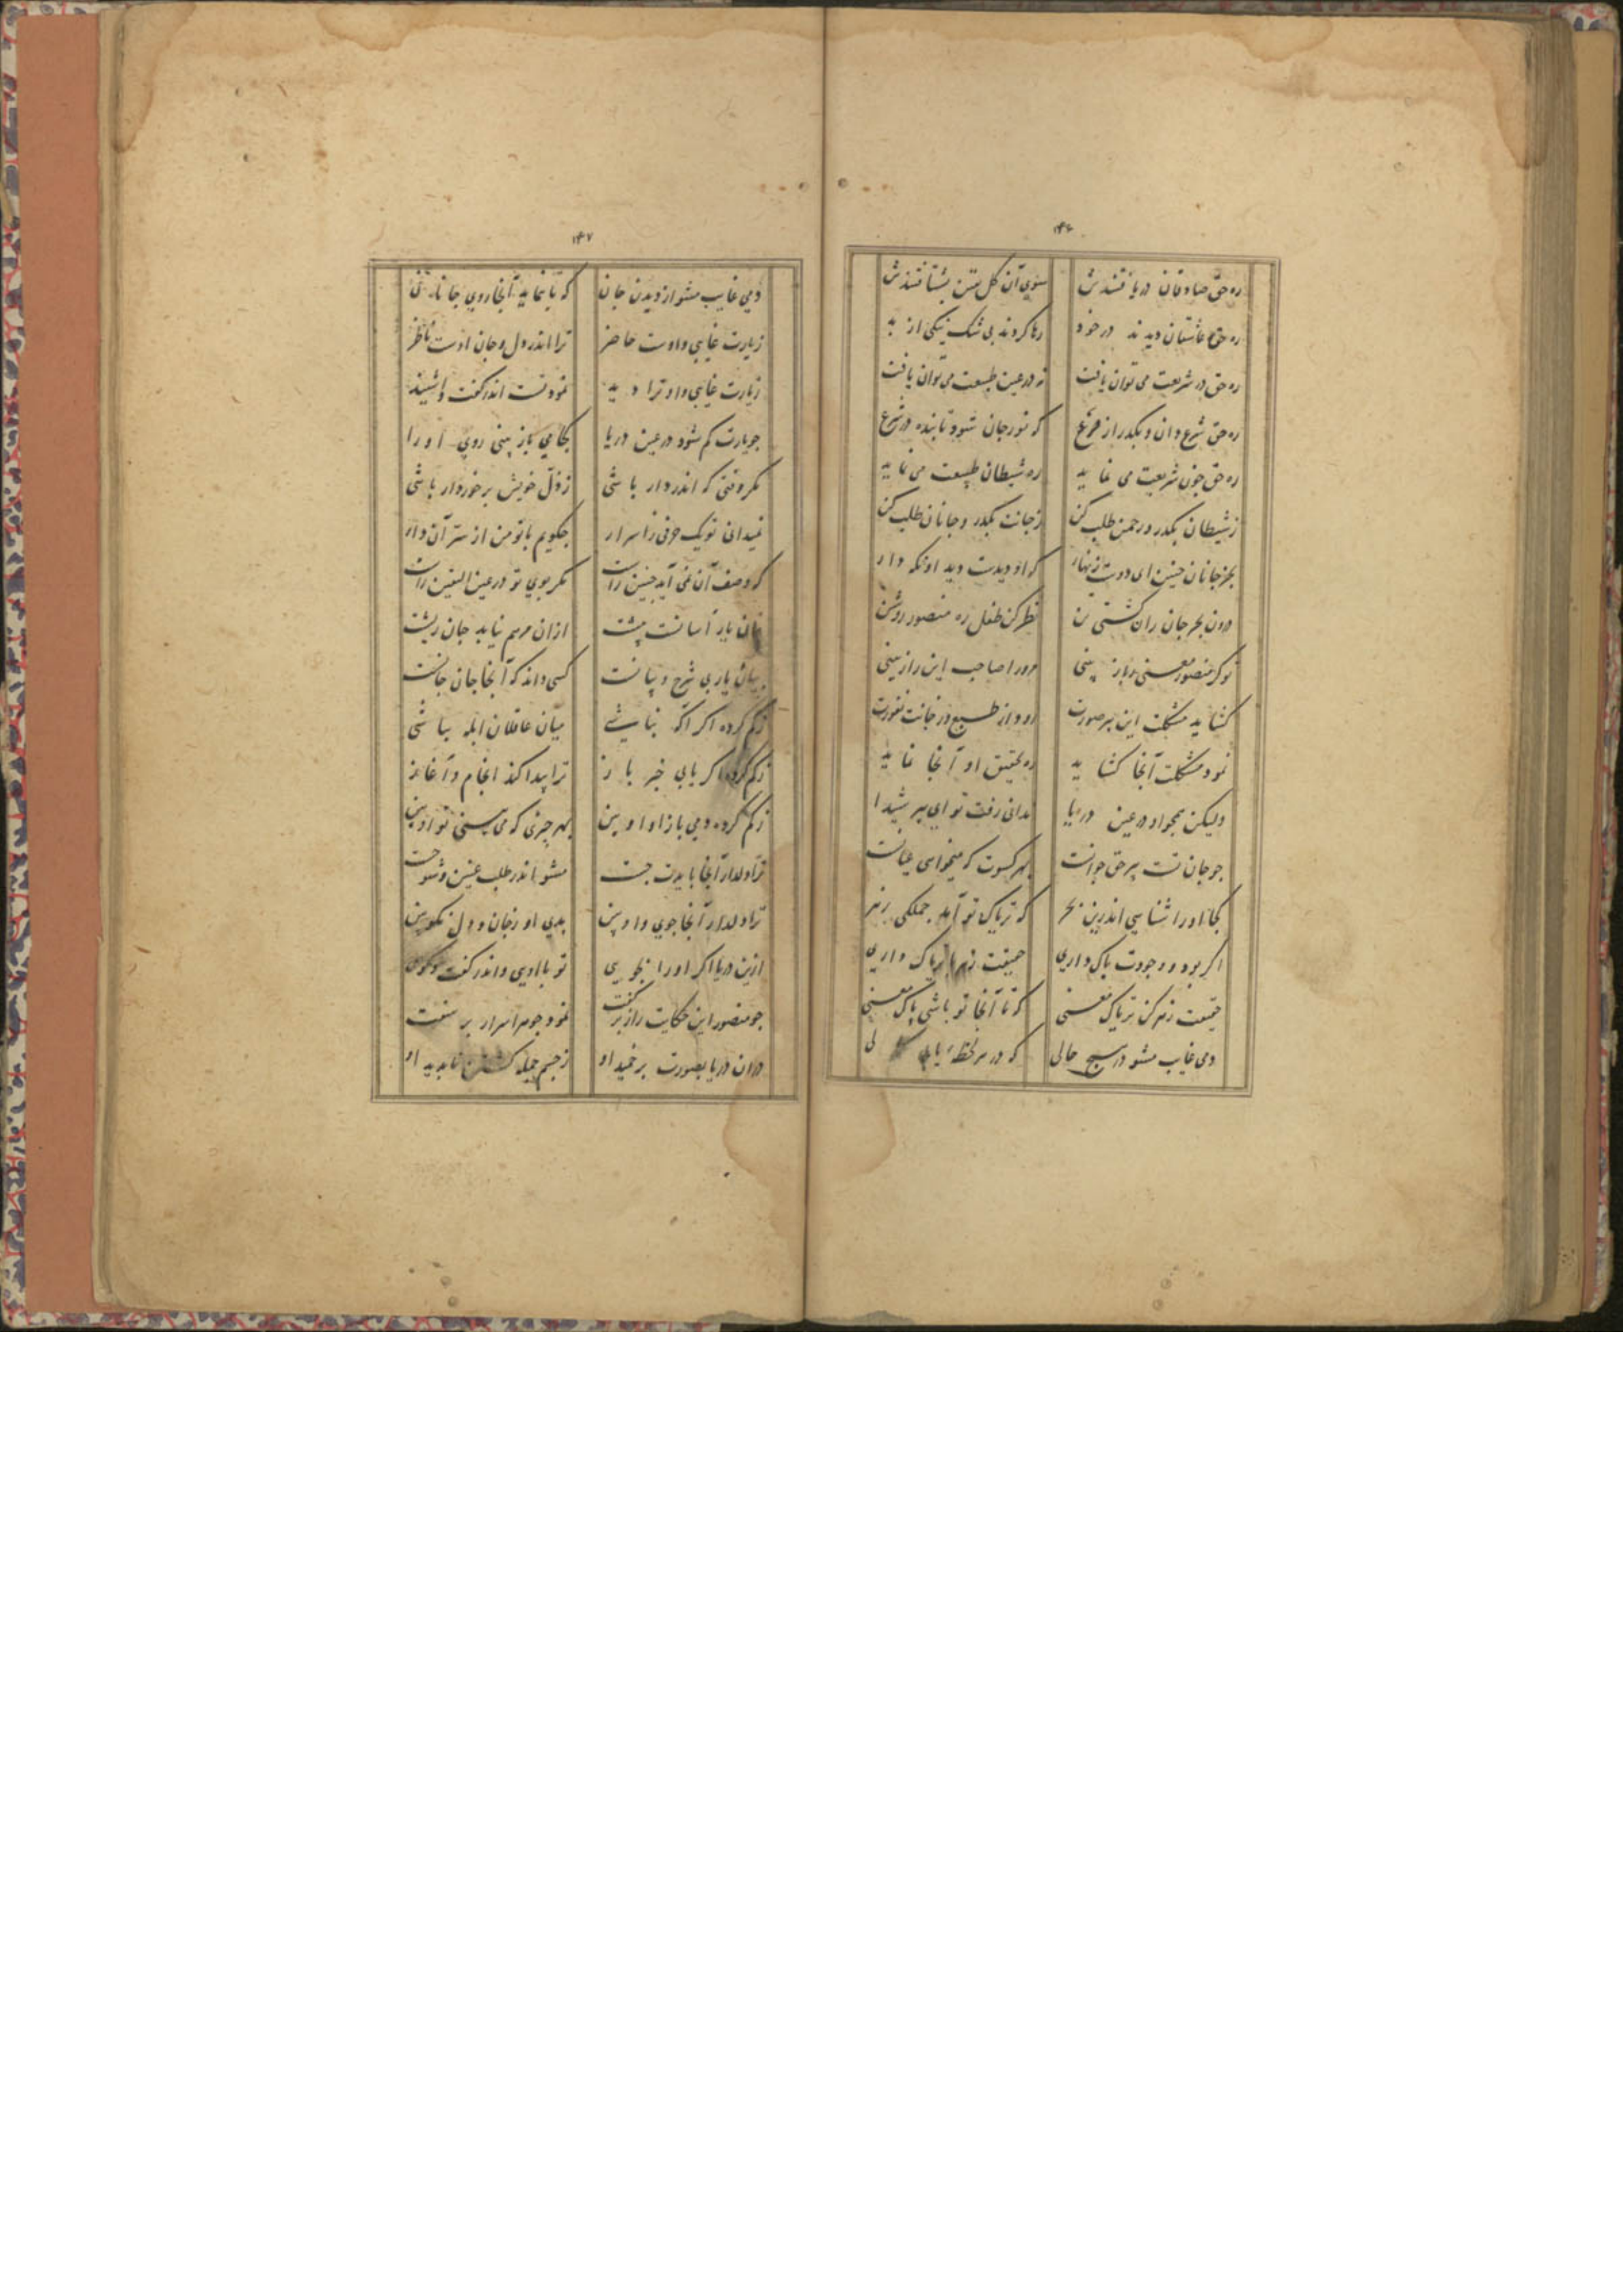 ۱۴۶
ره حق صادقان دریافتندش سوی آن کل بتن بشتافتندش
ره حق عاشقان دیدند در خود رها کردند بی شک نیکی از بد
ره حق در شریعت می توان یافت نه در عین طبیعت می توان یافت
ره حق شرع دان و بکذر از فرع که نور جان شود تابنده در شرع
ره حق جون شریعت می نماید ره شیطان طبیعت می نماید
ز شیطان بکذر و رحمن طلب کن ز جانت بکذر و جانان طلب کن
بجز جانان مبین ای دوست زنهار که او دیدت دید او نکه دار
درون بحر جان ران کشتی تن نظر کن طفل ره منصور روشن
تو کر منصور معنی باز بینی مر او را صاحب این راز بینی
کشاید مشکلت این بیر صورت رود از طبع در جانت نفورت
نمود مشکلت آنجا کشاید ره تحقیق او آنجا نماید
ولیکن همجو او در عین دریا ندانی رفت تو ای بیر شیدا
جو جان تست پیر حق جوانت بهر کسوت که میخواهی عیانت
کجا او را شناسی اندرین بحر که تریاک تو آمد جملکی زهر
اکر بود و وجودت باک داری حقیقت زهر با تریاک داری
حقیقت زهر کن تریاک معنی که تا آنجا تو باشی پاک معنی
دمی غایب مشو در هیج حالی که در هر لحظه یابی لی
۱۴۷
دمی غایب مشو از دیدن جان که تا بنماید آنجا روی جانان
زیارت غایبی و اوست حاضر ترا اندر دل و جان اوست ناظر
زیارت غایبی و او ترا دید نمود تست اندر کفت و اشنید
جو یارت کم شود در عین دریا کجا می باز بینی روی او را
مکر وقتی که اندر دار باشی ز ذل خویش برخوردار باشی
نمیدانی تو یک حرفی ز اسرار جکویم با تو من از سر آن دار
که وصف آن نمی آید جنین راست مکر بویی تو در عین الیقین راست
از ان مرهم نیابد جان ریشت
بیان یار بی شرح و بیانست کسی داند که آنجا جان جانست
ز کم کرده اکر اکه نباشی میان عاقلان ابله بباشی
ز کم کرده اکر یابی خبر باز ترا پیدا کند انجام و آغاز
ز کم کرده دمی باز او او بین بهر جیزی که می بینی تو او بین
ترا دلدار آنجا بایدت جست مشو اندر طلب
ترا دلدار آنجا جوی و او بین بدی او ز جان و دل نکو بین
ازین دریا اکر او را بجویی تو با اویی و اندر کفت و کویی
جو منصور این حکایت راز بر کفت نمود جوهر اسرار بر سفت
در ان دریا بصورت برخمید او ز جسم جمله کشتن نابدید او